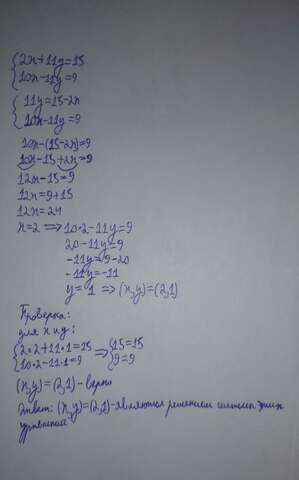 {2x+11y=15
{10x-11y=9
{11y=15-2x
{10x-11y=9
10x-(15-2x)=9
10x-15+2x=9
12x-15=9
12x=9+15
12x=24
x=2 ⟹ 10·2-11y=9
20-11y=9
-11y=9-20
-11y=-11
y=1 ⟹ (x,y)=(2,1)
Проверка:
для x и y:
{2·2+11·1=15 ⟹ {15=15
{10·2-11·1=9 {9=9
(x,y)=(2,1)-верно
Ответ: (x,y)=(2,1)-является решением системы этих
уравнений